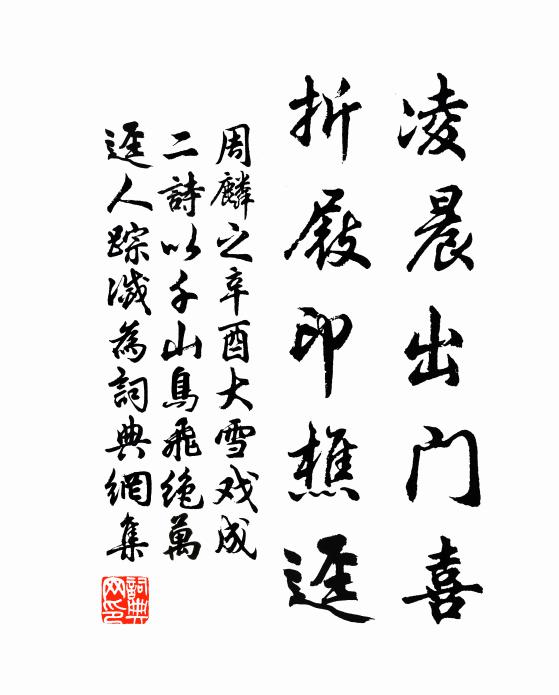 凌晨出门喜
折屐印樵逕
周麟之辛酉大雪戏成
二詩以千山鳥飛絶萬
逕人踪滅為詞典網集
詞典
网印